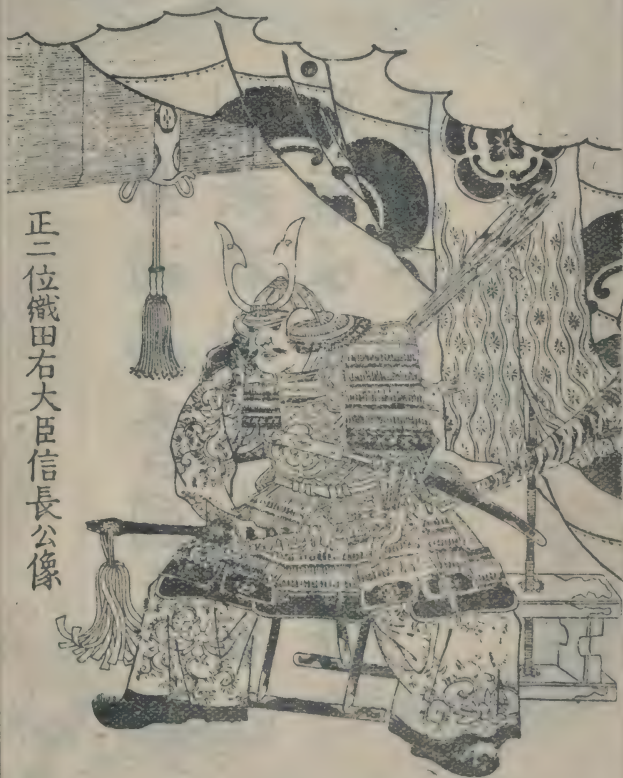 正二位織田右大臣信長公像